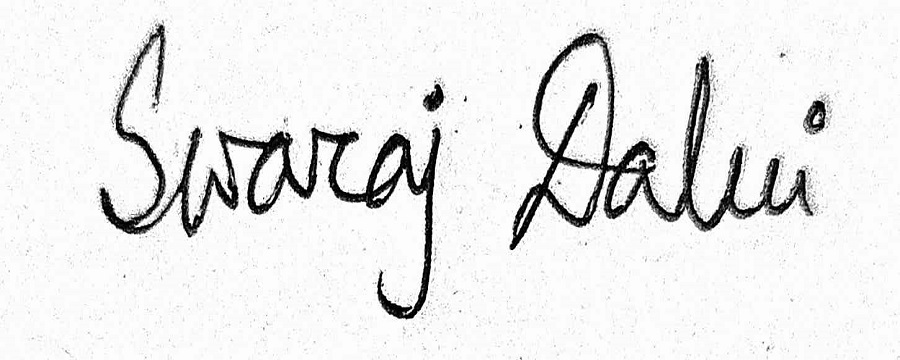 Swaraj Dalui